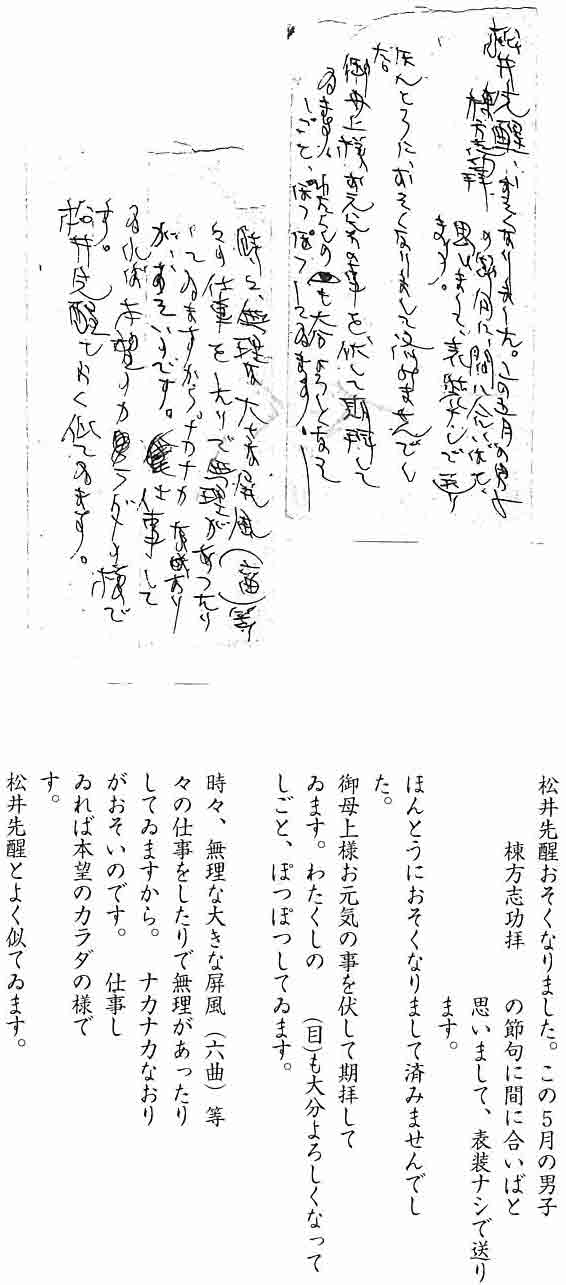 松井先醒、おそくなりました。この五月の男子
棟方志功拝
の節句に間に合いばと、
思いまして、表装ナシで送り
ます。
ほんとうにおそくなりまして済みませんでし
た。
御母上様お元気の事を、伏して期拝して
ゐます。わたくしの も大分よろしくなって
しごと、ぽつぽつしてゐます。
時々、無理な大きな屏風（六曲）等
々の仕事をしたりで無理があったり
してゐますから。ナカナカなおり
がおそいのです。仕事して
ゐれば本望のカラダの様で
す。
松井先醒とよく似てゐます。
松井先醒おそくなりました。この５月の男子
棟方志功拝
の節句に間に合いばと
思いまして、表装ナシで送り
ます。
ほんとうにおそくなりまして済みませんでし
た。
御母上様お元気の事を伏して期拝して
ゐます。わたくしの　（目）も大分よろしくなって
しごと、ぽつぽつしてゐます。
時々、無理な大きな屏風（六曲）等
々の仕事をしたりで無理があったり
してゐますから。　ナカナカなおり
がおそいのです。　仕事し
ゐれば本望のカラダの様で
す。
松井先醒とよく似てゐます。